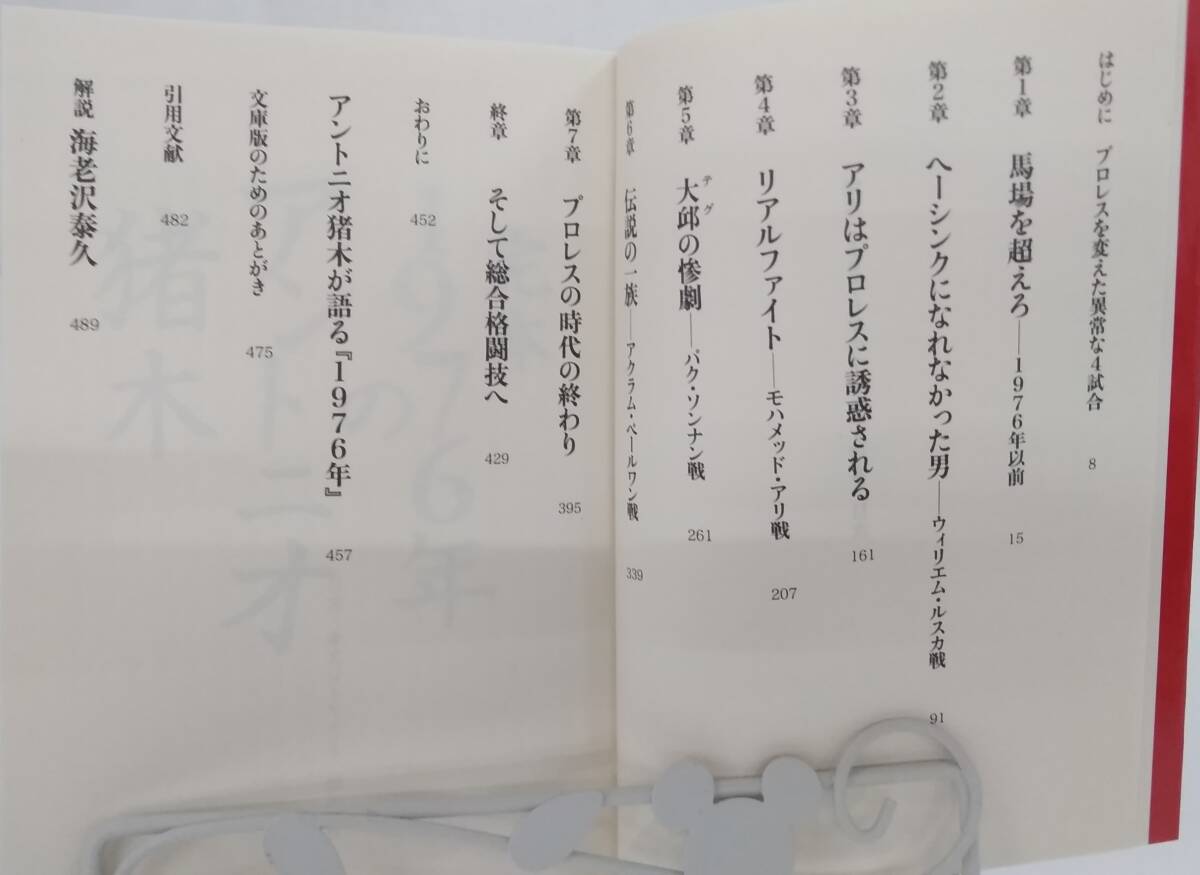 はじめに プロレスを変えた異常な4試合 8
第1章 馬場を超えろ——1976年以前 15
第2章 ヘーシンクになれなかった男——ウィリエム・ルスカ戦 91
第3章 アリはプロレスに誘惑される 161
第4章 リアルファイト——モハメッド・アリ戦 207
第5章 大邱の惨劇——パク・ソンナン戦 261
テグ
第6章 伝説の一族——アクラム・ペールワン戦 339
第7章 プロレスの時代の終わり 395
終章 そして総合格闘技へ 429
おわりに 452
アントニオ猪木が語る『1976年』 457
文庫版のためのあとがき 475
引用文献 482
解説 海老沢泰久 489